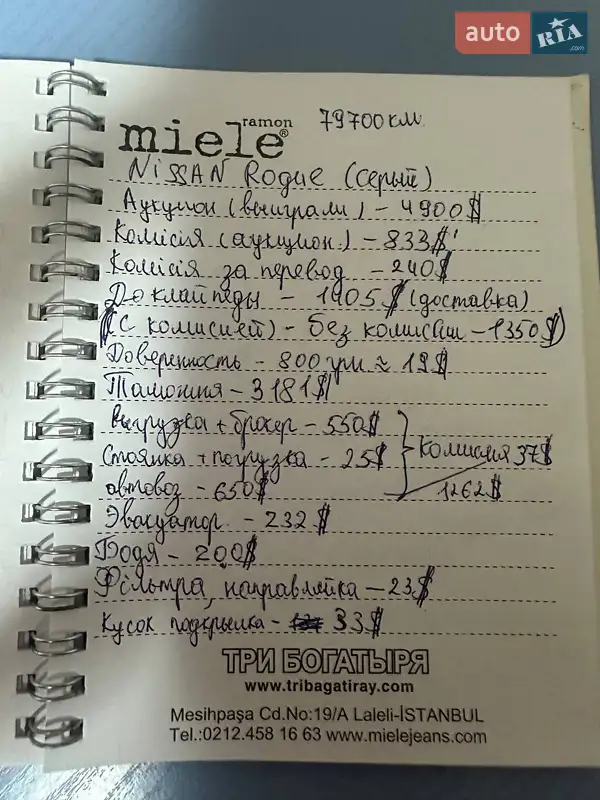 auto RIA .com
79700км.
ramon
miele®
NISSAN Rogue (серый)
Аукцион (выиграли) - 4900$
Комісія (аукцион.) - 833$
Комісія за перевод - 240$
До клайпеды - 1405$ (доставка)
(С комисией) - без комисии - 1350$)
Доверенность - 800 грн ≈ 19$
Таможня - 3181$
Выгрузка + брокер - 550$
Стоянка + погрузка - 25$ Комиссия 37$
автовоз - 650$ 1262$
Эвакуатор - 232$
Бодя - 200$
Фільтра, направлейка - 23$
Кусок подкрылка - 33$
ТРИ БОГАТЫРЯ
www.tribagatiray.com
Mesihpaşa Cd.No:19/A Laleli-İSTANBUL
Tel.:0212.458 16 63 www.mielejeans.com